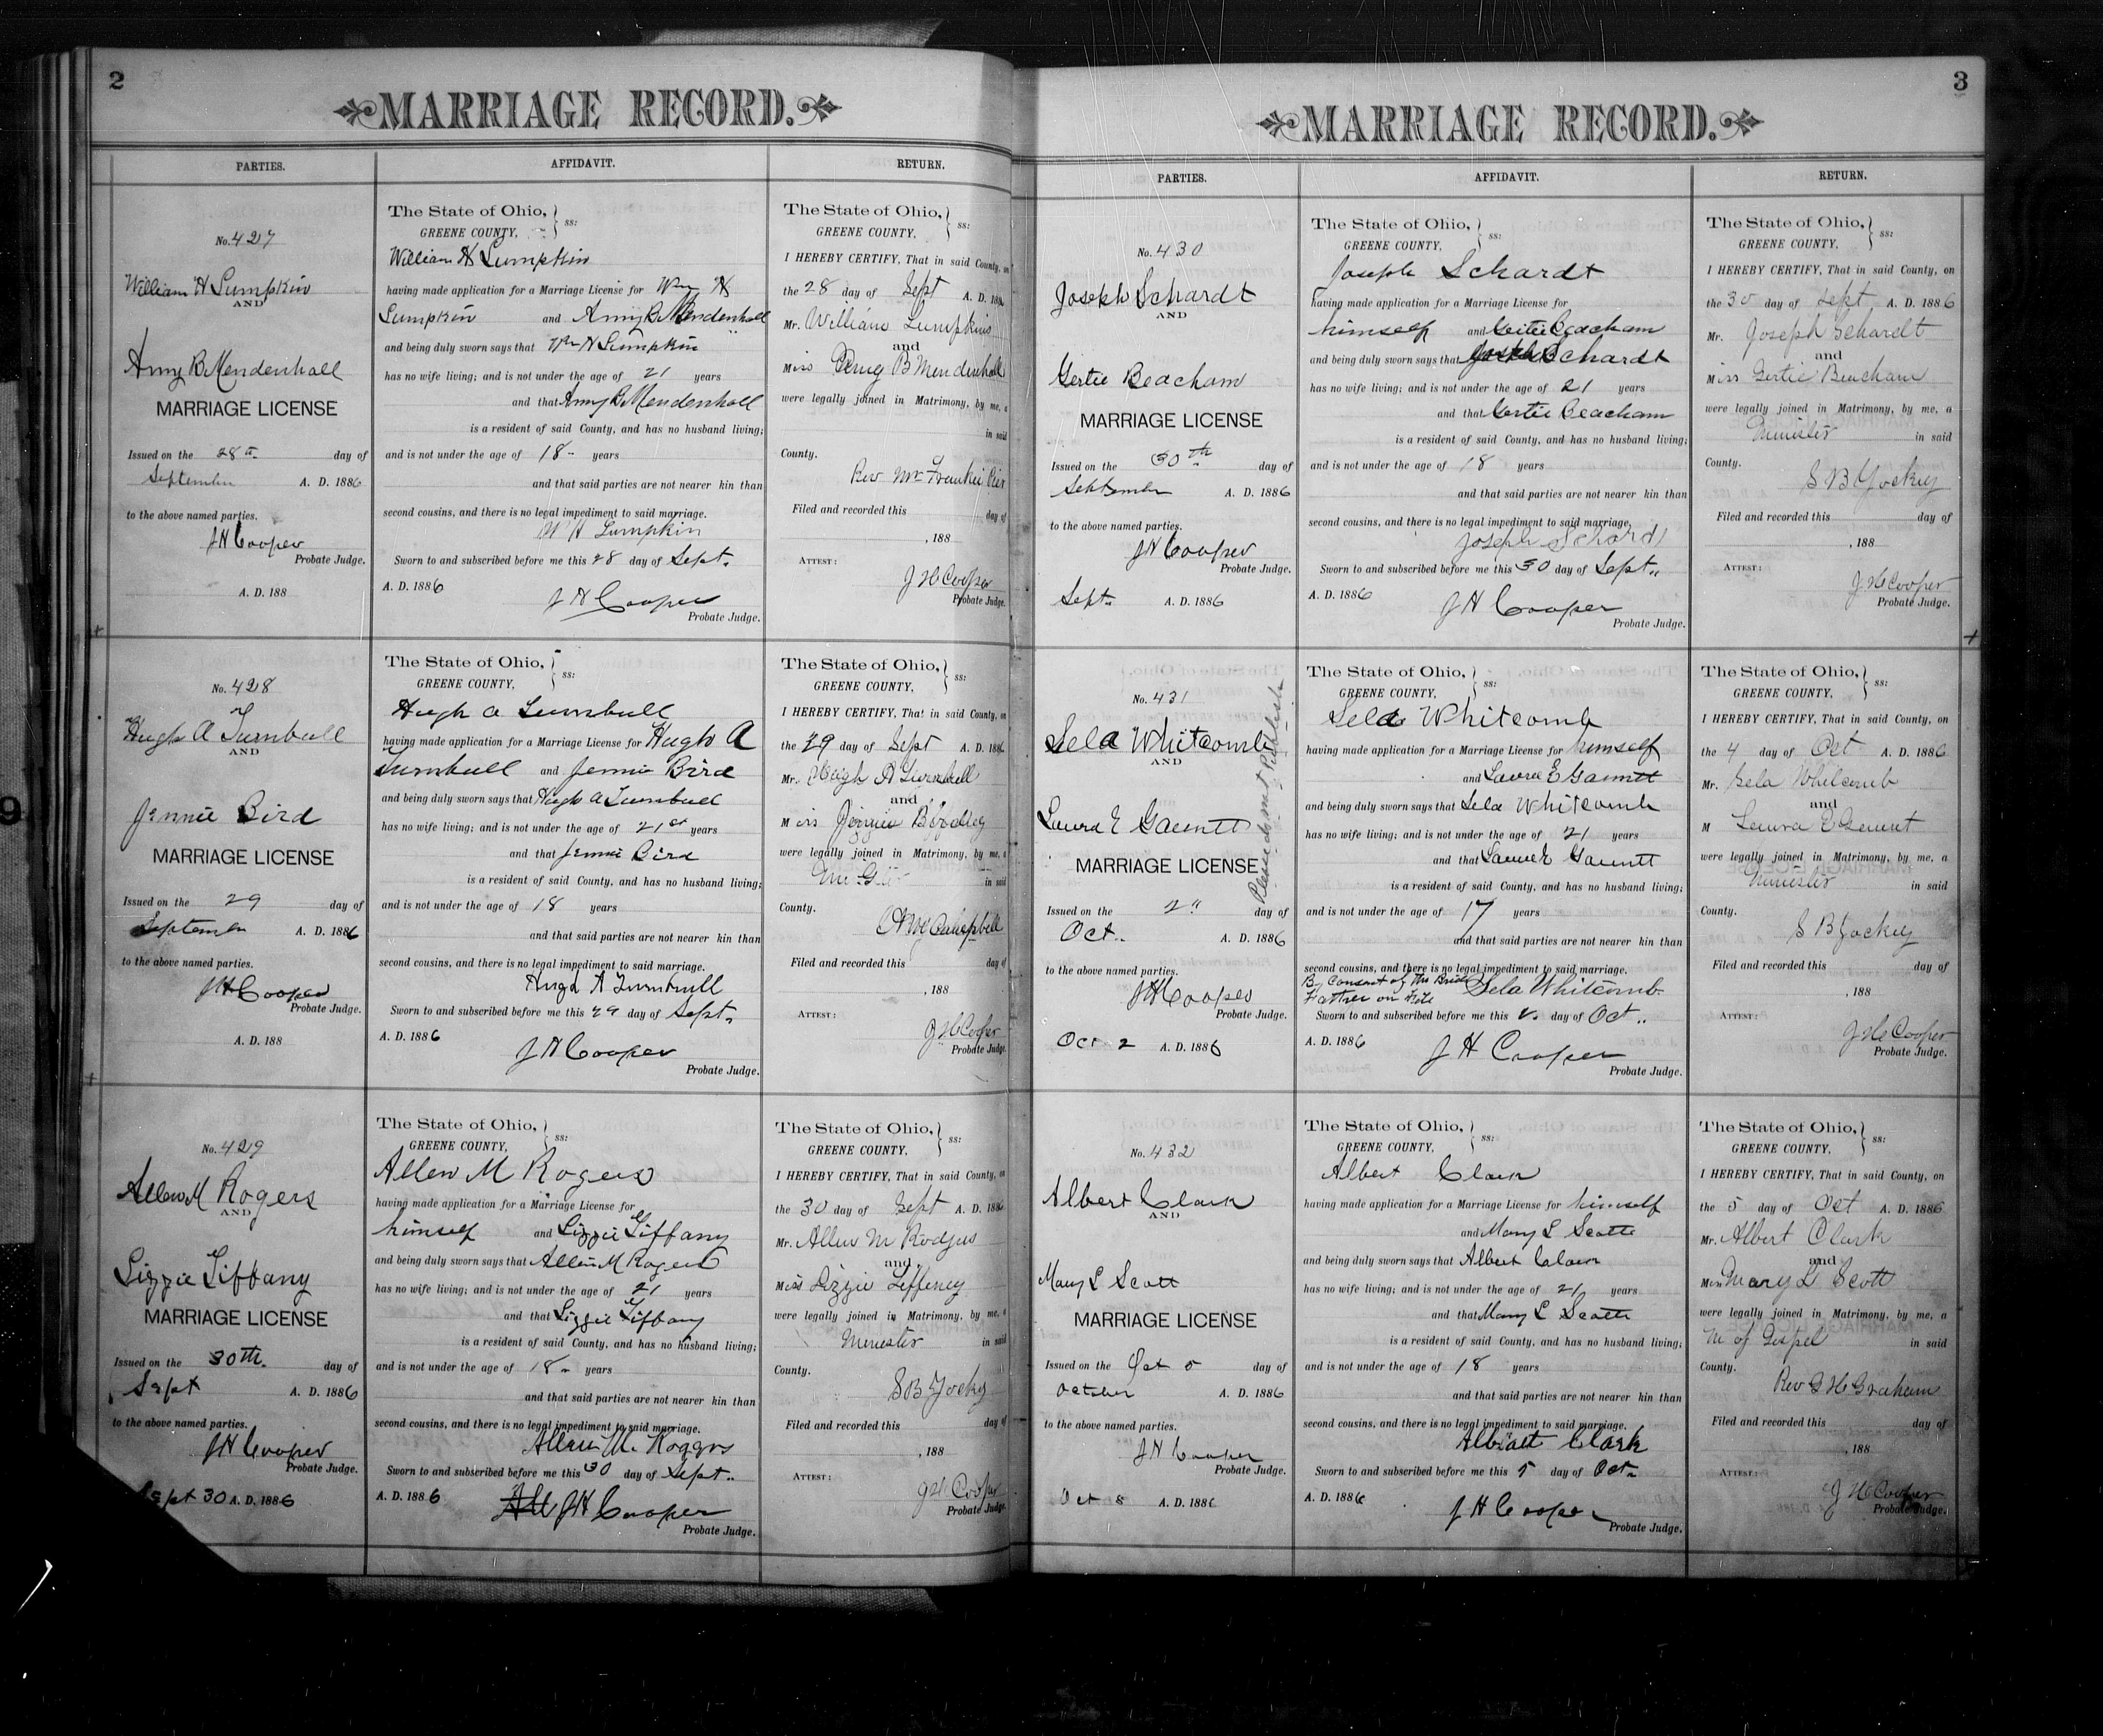 2
MARRIAGE RECORD.
PARTIES.
AFFIDAVIT.
RETURN.
No. 427
William H Lumpkin
AND
Amy B Mendenhall
MARRIAGE LICENSE
Issued on the 28th day of
September A. D. 1886
to the above named parties.
J H Cooper
Probate Judge.
A. D. 188
The State of Ohio,
GREENE COUNTY, ss:
William H Lumpkin
having made application for a Marriage License for Wm H
Lumpkin and Amy B Mendenhall
and being duly sworn says that Wm H Lumpkin
has no wife living; and is not under the age of 21 years
and that Amy B Mendenhall
is a resident of said County, and has no husband living;
and is not under the age of 18 years
and that said parties are not nearer kin than
second cousins, and there is no legal impediment to said marriage.
W H Lumpkin
Sworn to and subscribed before me this 28 day of Sept.
A. D. 1886
J H Cooper
Probate Judge.
The State of Ohio,
GREENE COUNTY, ss:
I HEREBY CERTIFY, That in said County, on
the 28 day of Sept A. D. 188
Mr. William Lumpkins
and
Miss B Mendenhall
were legally joined in Matrimony, by me, a
in said
County.
Rev Mr
Filed and recorded this day of
, 188
ATTEST:
J H Cooper
Probate Judge.
No. 428
Hugh A Turnbull
AND
Jennie Bird
MARRIAGE LICENSE
Issued on the 29 day of
September A. D. 1886
to the above named parties.
J H Cooper
Probate Judge.
A. D. 188
The State of Ohio,
GREENE COUNTY, ss:
Hugh A Turnbull
having made application for a Marriage License for Hugh A
Turnbull and Jennie Bird
and being duly sworn says that Hugh A Turnbull
has no wife living; and is not under the age of 21st years
and that Jennie Bird
is a resident of said County, and has no husband living;
and is not under the age of 18 years
and that said parties are not nearer kin than
second cousins, and there is no legal impediment to said marriage.
Hugh A Turnbull
Sworn to and subscribed before me this 29 day of Sept.
A. D. 1886
J H Cooper
Probate Judge.
The State of Ohio,
GREENE COUNTY, ss:
I HEREBY CERTIFY, That in said County, on
the 29 day of Sept A. D. 188
Mr. Hugh A Turnbull
and
Miss Jennie
were legally joined in Matrimony, by me, a
in said
County.
Campbell
Filed and recorded this day of
, 188
ATTEST:
J H Cooper
Probate Judge.
No. 429
Allen M Rogers
AND
Lizzie Tiffany
MARRIAGE LICENSE
Issued on the 30th. day of
Sept A. D. 1886
to the above named parties.
J H Cooper
Probate Judge.
Sept 30 A. D. 1886
The State of Ohio,
GREENE COUNTY, ss:
Allen M Rogers
having made application for a Marriage License for
himself and Lizzie Tiffany
and being duly sworn says that Allen M Rogers
has no wife living; and is not under the age of 21 years
and that Lizzie Tiffany
is a resident of said County, and has no husband living;
and is not under the age of 18 years
and that said parties are not nearer kin than
second cousins, and there is no legal impediment to said marriage.
Allen M. Roggrs
Sworn to and subscribed before me this 30 day of Sept.
A. D. 1886
J H Cooper
Probate Judge.
The State of Ohio,
GREENE COUNTY, ss:
I HEREBY CERTIFY, That in said County, on
the 30 day of Sept A. D. 188
Mr. Allen M Rodgers
and
Miss Lizzie Teffeney
were legally joined in Matrimony, by me, a
Minister in said
County.
S B Yockey
Filed and recorded this day of
, 188
ATTEST:
J H Cooper
Probate Judge.
3
MARRIAGE RECORD.
PARTIES.
AFFIDAVIT.
RETURN.
No. 430
Joseph Schardt
AND
Gertie Beacham
MARRIAGE LICENSE
Issued on the 30th day of
September A. D. 1886
to the above named parties.
J H Cooper
Probate Judge.
Sept. A. D. 1886
The State of Ohio,
GREENE COUNTY, ss:
Joseph Schardt
having made application for a Marriage License for
himself and Gertie Beacham
and being duly sworn says that Joseph Schardt
has no wife living; and is not under the age of 21 years
and that Gertie Beacham
is a resident of said County, and has no husband living;
and is not under the age of 18 years
and that said parties are not nearer kin than
second cousins, and there is no legal impediment to said marriage.
Joseph Schardt
Sworn to and subscribed before me this 30 day of Sept.
A. D. 1886
J H Cooper
Probate Judge.
The State of Ohio,
GREENE COUNTY, ss:
I HEREBY CERTIFY, That in said County, on
the 30 day of Sept A. D. 1886
Mr. Joseph Schardt
and
Miss Gertie Beacham
were legally joined in Matrimony, by me, a
Minister in said
County.
S B Yockey
Filed and recorded this day of
, 188
ATTEST:
J H Cooper
Probate Judge.
No. 431
Sela Whitcomb
AND
Laura E Gauntt
MARRIAGE LICENSE
Issued on the 2" day of
Oct. A. D. 1886
to the above named parties.
J H Cooper
Probate Judge.
Oct 2 A. D. 1886
Please do not Publish
The State of Ohio,
GREENE COUNTY, ss:
Sela Whitcomb
having made application for a Marriage License for himself
and Laura E Gauntt
and being duly sworn says that Sela Whitcomb
has no wife living; and is not under the age of 21 years
and that Laura E Gauntt
is a resident of said County, and has no husband living;
and is not under the age of 17 years
and that said parties are not nearer kin than
second cousins, and there is no legal impediment to said marriage.
By Consent of the Brides Sela Whitcomb
Father on File
Sworn to and subscribed before me this 2. day of Oct.
A. D. 1886
J H Cooper
Probate Judge.
The State of Ohio,
GREENE COUNTY, ss:
I HEREBY CERTIFY, That in said County, on
the 4 day of Oct A. D. 1886
Mr. Sela Whitcomb
and
M Laura E Gaunt
were legally joined in Matrimony, by me, a
Minister in said
County.
S B Yockey
Filed and recorded this day of
, 188
ATTEST:
J H Cooper
Probate Judge.
No. 432
Albert Clark
AND
Mary L Scott
MARRIAGE LICENSE
Issued on the Oct 5 day of
October A. D. 1886
to the above named parties.
J H Cooper
Probate Judge.
Oct 5 A. D. 1886
The State of Ohio,
GREENE COUNTY, ss:
Albert Clark
having made application for a Marriage License for himself
and Mary L Scott
and being duly sworn says that Albert Clark
has no wife living; and is not under the age of 21 years
and that Mary L Scott
is a resident of said County, and has no husband living;
and is not under the age of 18 years
and that said parties are not nearer kin than
second cousins, and there is no legal impediment to said marriage.
Albert Clark
Sworn to and subscribed before me this 5 day of Oct.
A. D. 1886
J H Cooper
Probate Judge.
The State of Ohio,
GREENE COUNTY, ss:
I HEREBY CERTIFY, That in said County, on
the 5 day of Oct A. D. 1886
Mr. Albert Clark
and
Miss Mary L Scott
were legally joined in Matrimony, by me, a
M of Gospel in said
County.
Rev G H Graham
Filed and recorded this day of
, 188
ATTEST:
J H Cooper
Probate Judge.